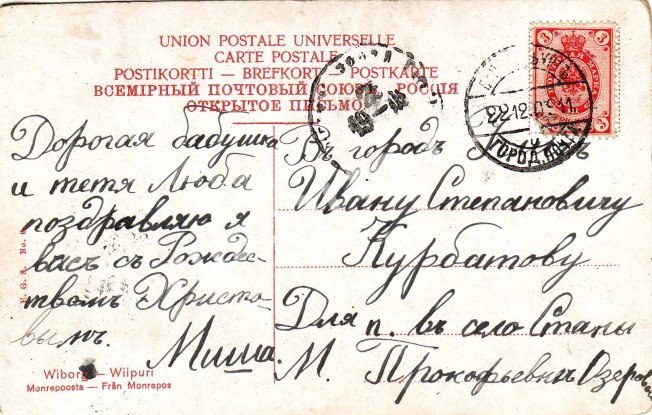 UNION POSTALE UNIVERSELLE
CARTE POSTALE
POSTIKORTTI — BREFKORT — POSTKARTE
ВСЕМІРНЫЙ ПОЧТОВЫЙ СОЮЗЪ. РОССІЯ
ОТКРЫТОЕ ПИСЬМО
3
3
22.12.0
ГОРОД. ПОЧТ
19
Дорогая бабушка
и тетя Люба
поздравляю я
васъ съ Рождес-
твомъ Христо-
вымъ.
Миша.
Въ городъ
Ивану Степановичу
Курбатову
Для п. въ село Станы
М. Прокофьевнъ Озеровой
E. G. S. No.
Wiborg — Wiipuri
Monrepoosta — Från Monrepos